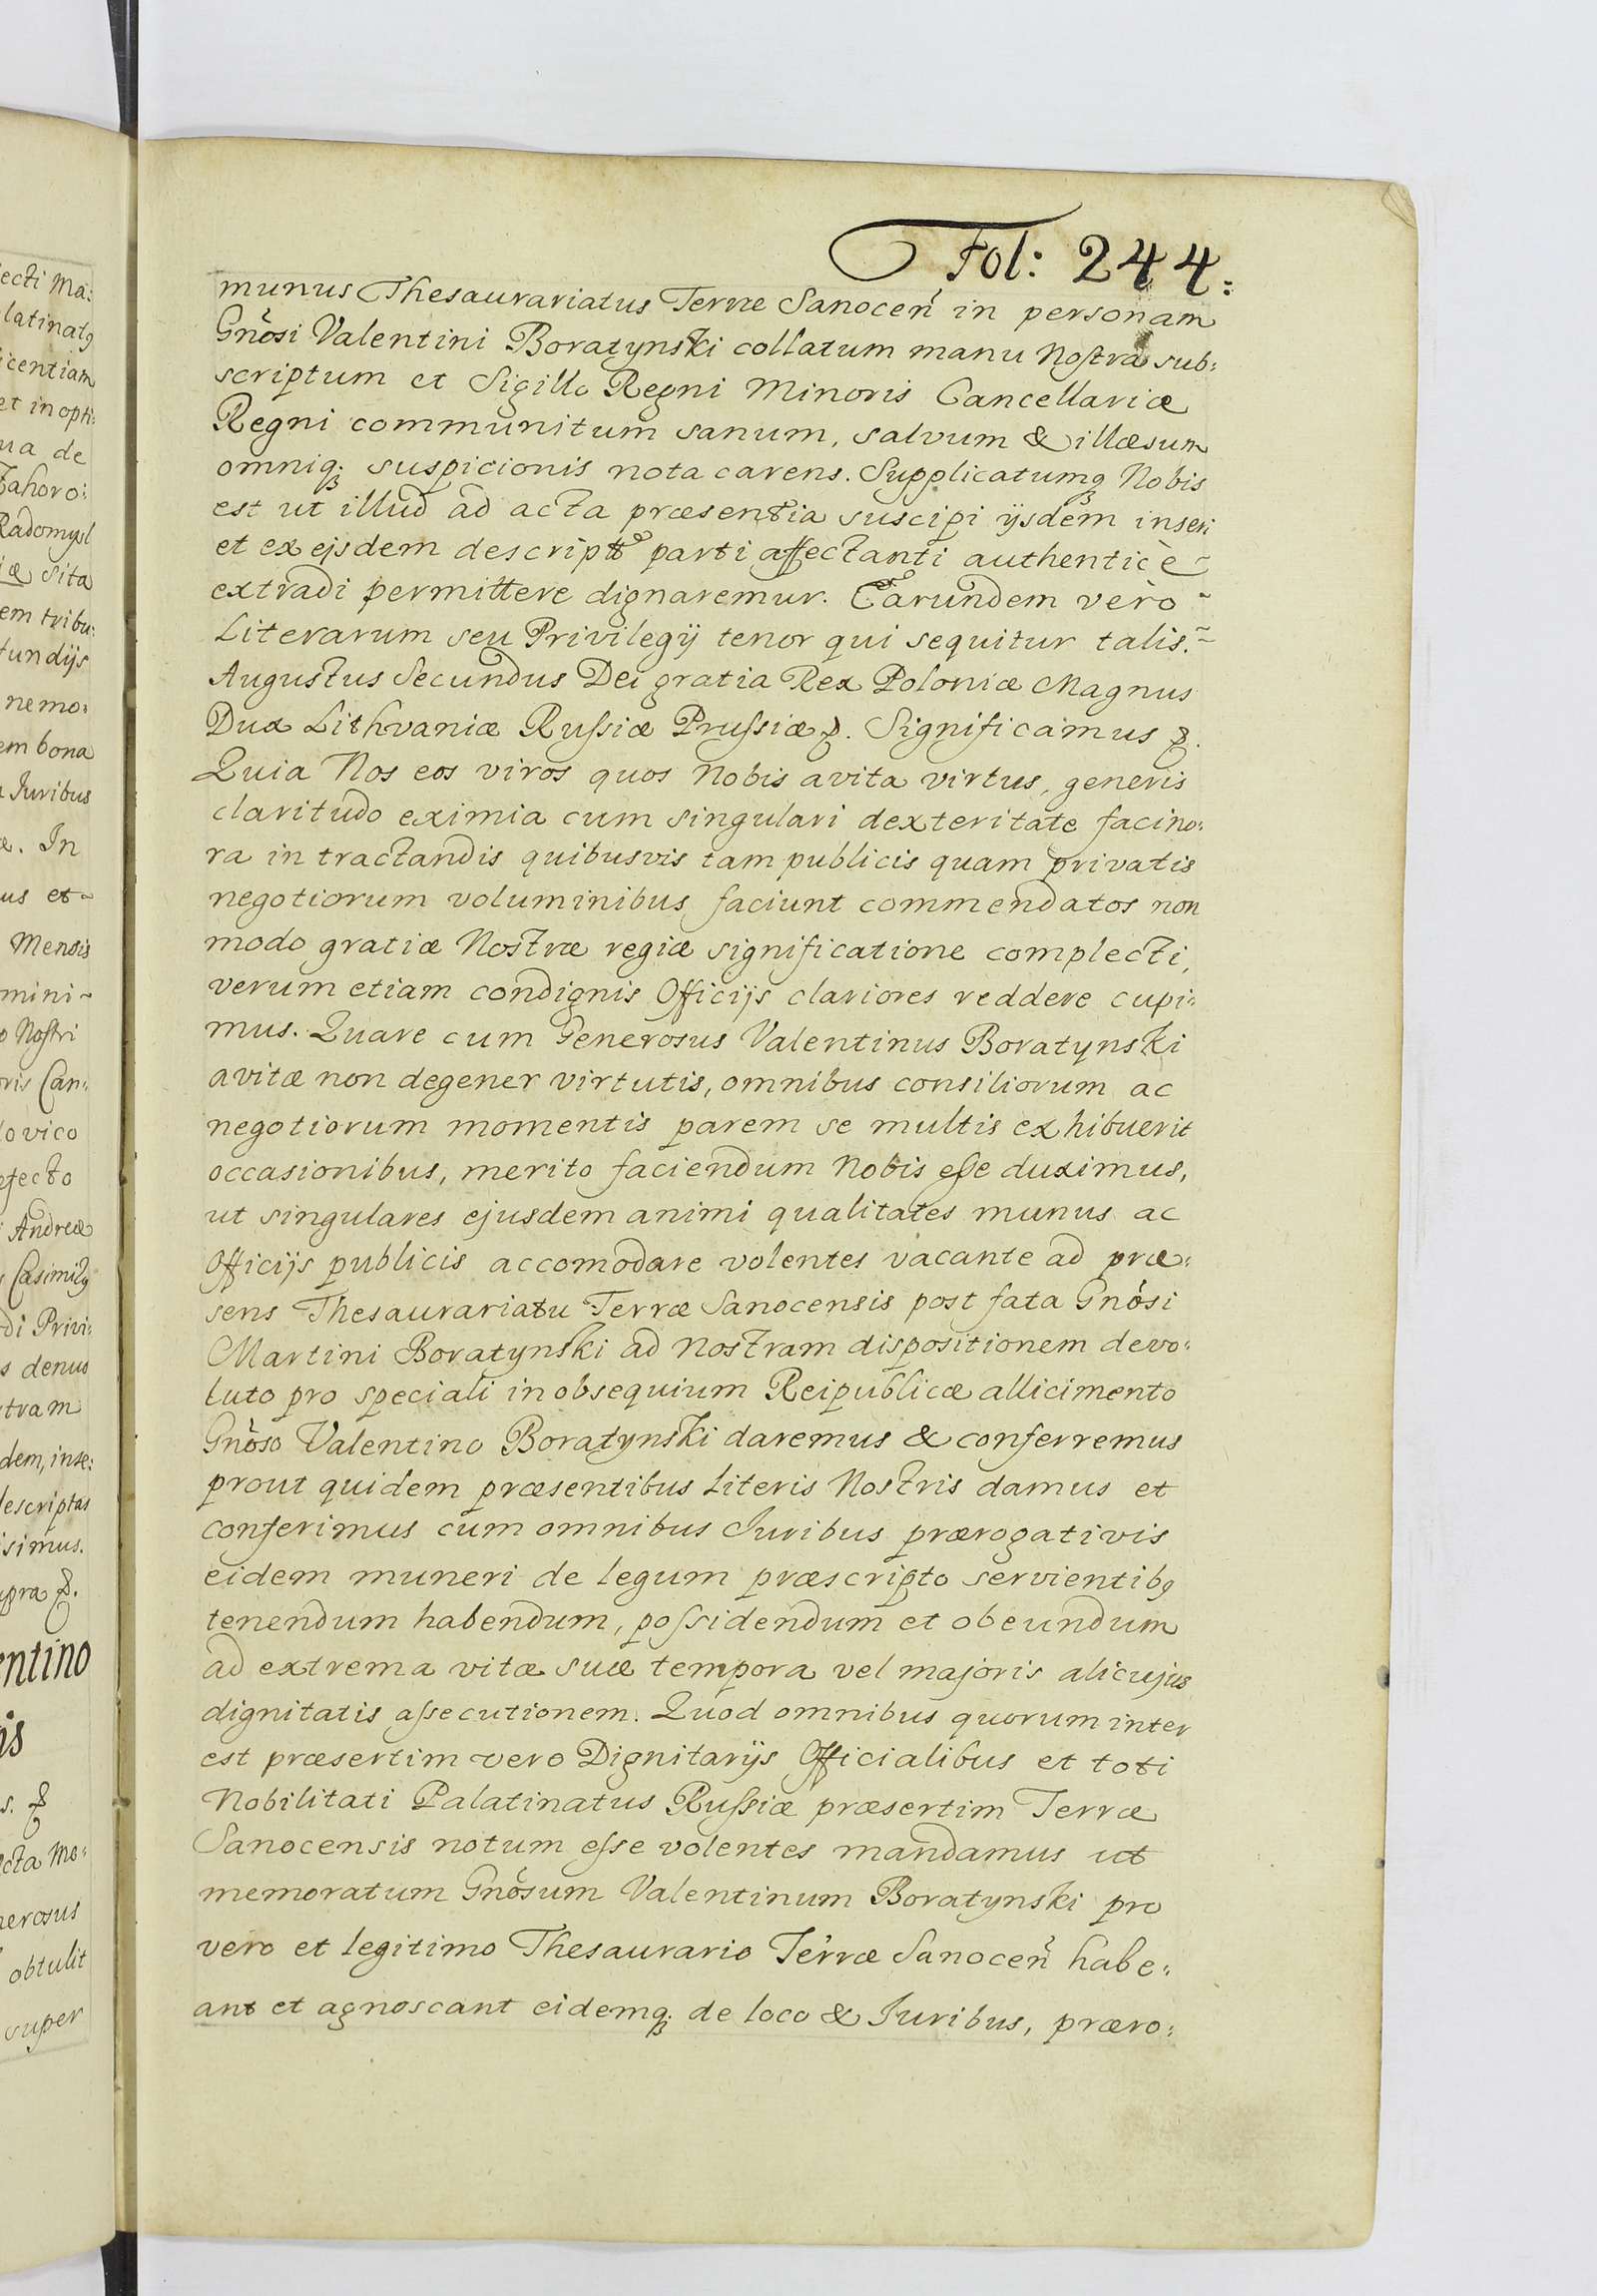 Fol: 244.
munus Thesaurariatus Terræ Sanoceñ in personam
Gnôsi Valentini Boratynski collatum manu Nostra sub:
scriptum et Sigillo Regni Minoris Cancellariæ
Regni communitum sanum, salvum & illæsum
omniq; suspicionis nota carens. Supplicatumq; Nobis
est ut illud ad acta præsentia suscipi ijsdem inseri
et ex ejsdem descriptt parti affectanti authenticè
extradi permittere dignaremur. Earundem verò
Literarum seu Privilegij tenor qui sequitur talis.
Augustus Secundus Dei gratia Rex Poloniæ Magnus
Dux Lithvaniæ Rußiæ Prußiæ &. Significamus &.
Quia Nos eos viros quos Nobis avita virtus, generis
claritudo eximia cum singulari dexteritate facino:
ra in tractandis quibusvis tam publicis quam privatis
negotiorum voluminibus faciunt commendatos non
modo gratiæ Nostræ regiæ significatione complecti,
verum etiam condignis Officijs clariores reddere cupi:
mus. Quare cum Generosus Valentinus Boratynski
avitæ non degener virtutis, omnibus consiliorum ac
negotiorum momentis parem se multis exhibuerit
occasionibus, merito faciendum Nobis eße duximus,
ut singulares ejusdem animi qualitates munus ac
Officijs publicis accomodare volentes vacante ad præ:
sens Thesaurariatu Terræ Sanocensis post fata Gnôsi
Martini Boratynski ad Nostram dispositionem devo:
luto pro speciali in obsequium Reipublicæ allicimento
Gnôso Valentino Boratynski daremus & conferremus
prout quidem præsentibus Literis Nostris damus et
conferimus cum omnibus Juribus prærogativis
eidem muneri de legum præscripto servientibq
tenendum habendum, poßidendum et obeundum
ad extrema vitæ suæ tempora vel majoris alicujus
dignitatis aßecutionem. Quod omnibus quorum inter
est præsertim vero Dignitarijs Officialibus et toti
Nobilitati Palatinatus Rußiæ præsertim Terræ
Sanocensis notum eße volentes mandamus ut
memoratum Gnôsum Valentinum Boratynski pro
vero et legitimo Thesaurario Terræ Sanoceñ habe:
ant et agnoscant eidemq; de loco & Juribus, præro: